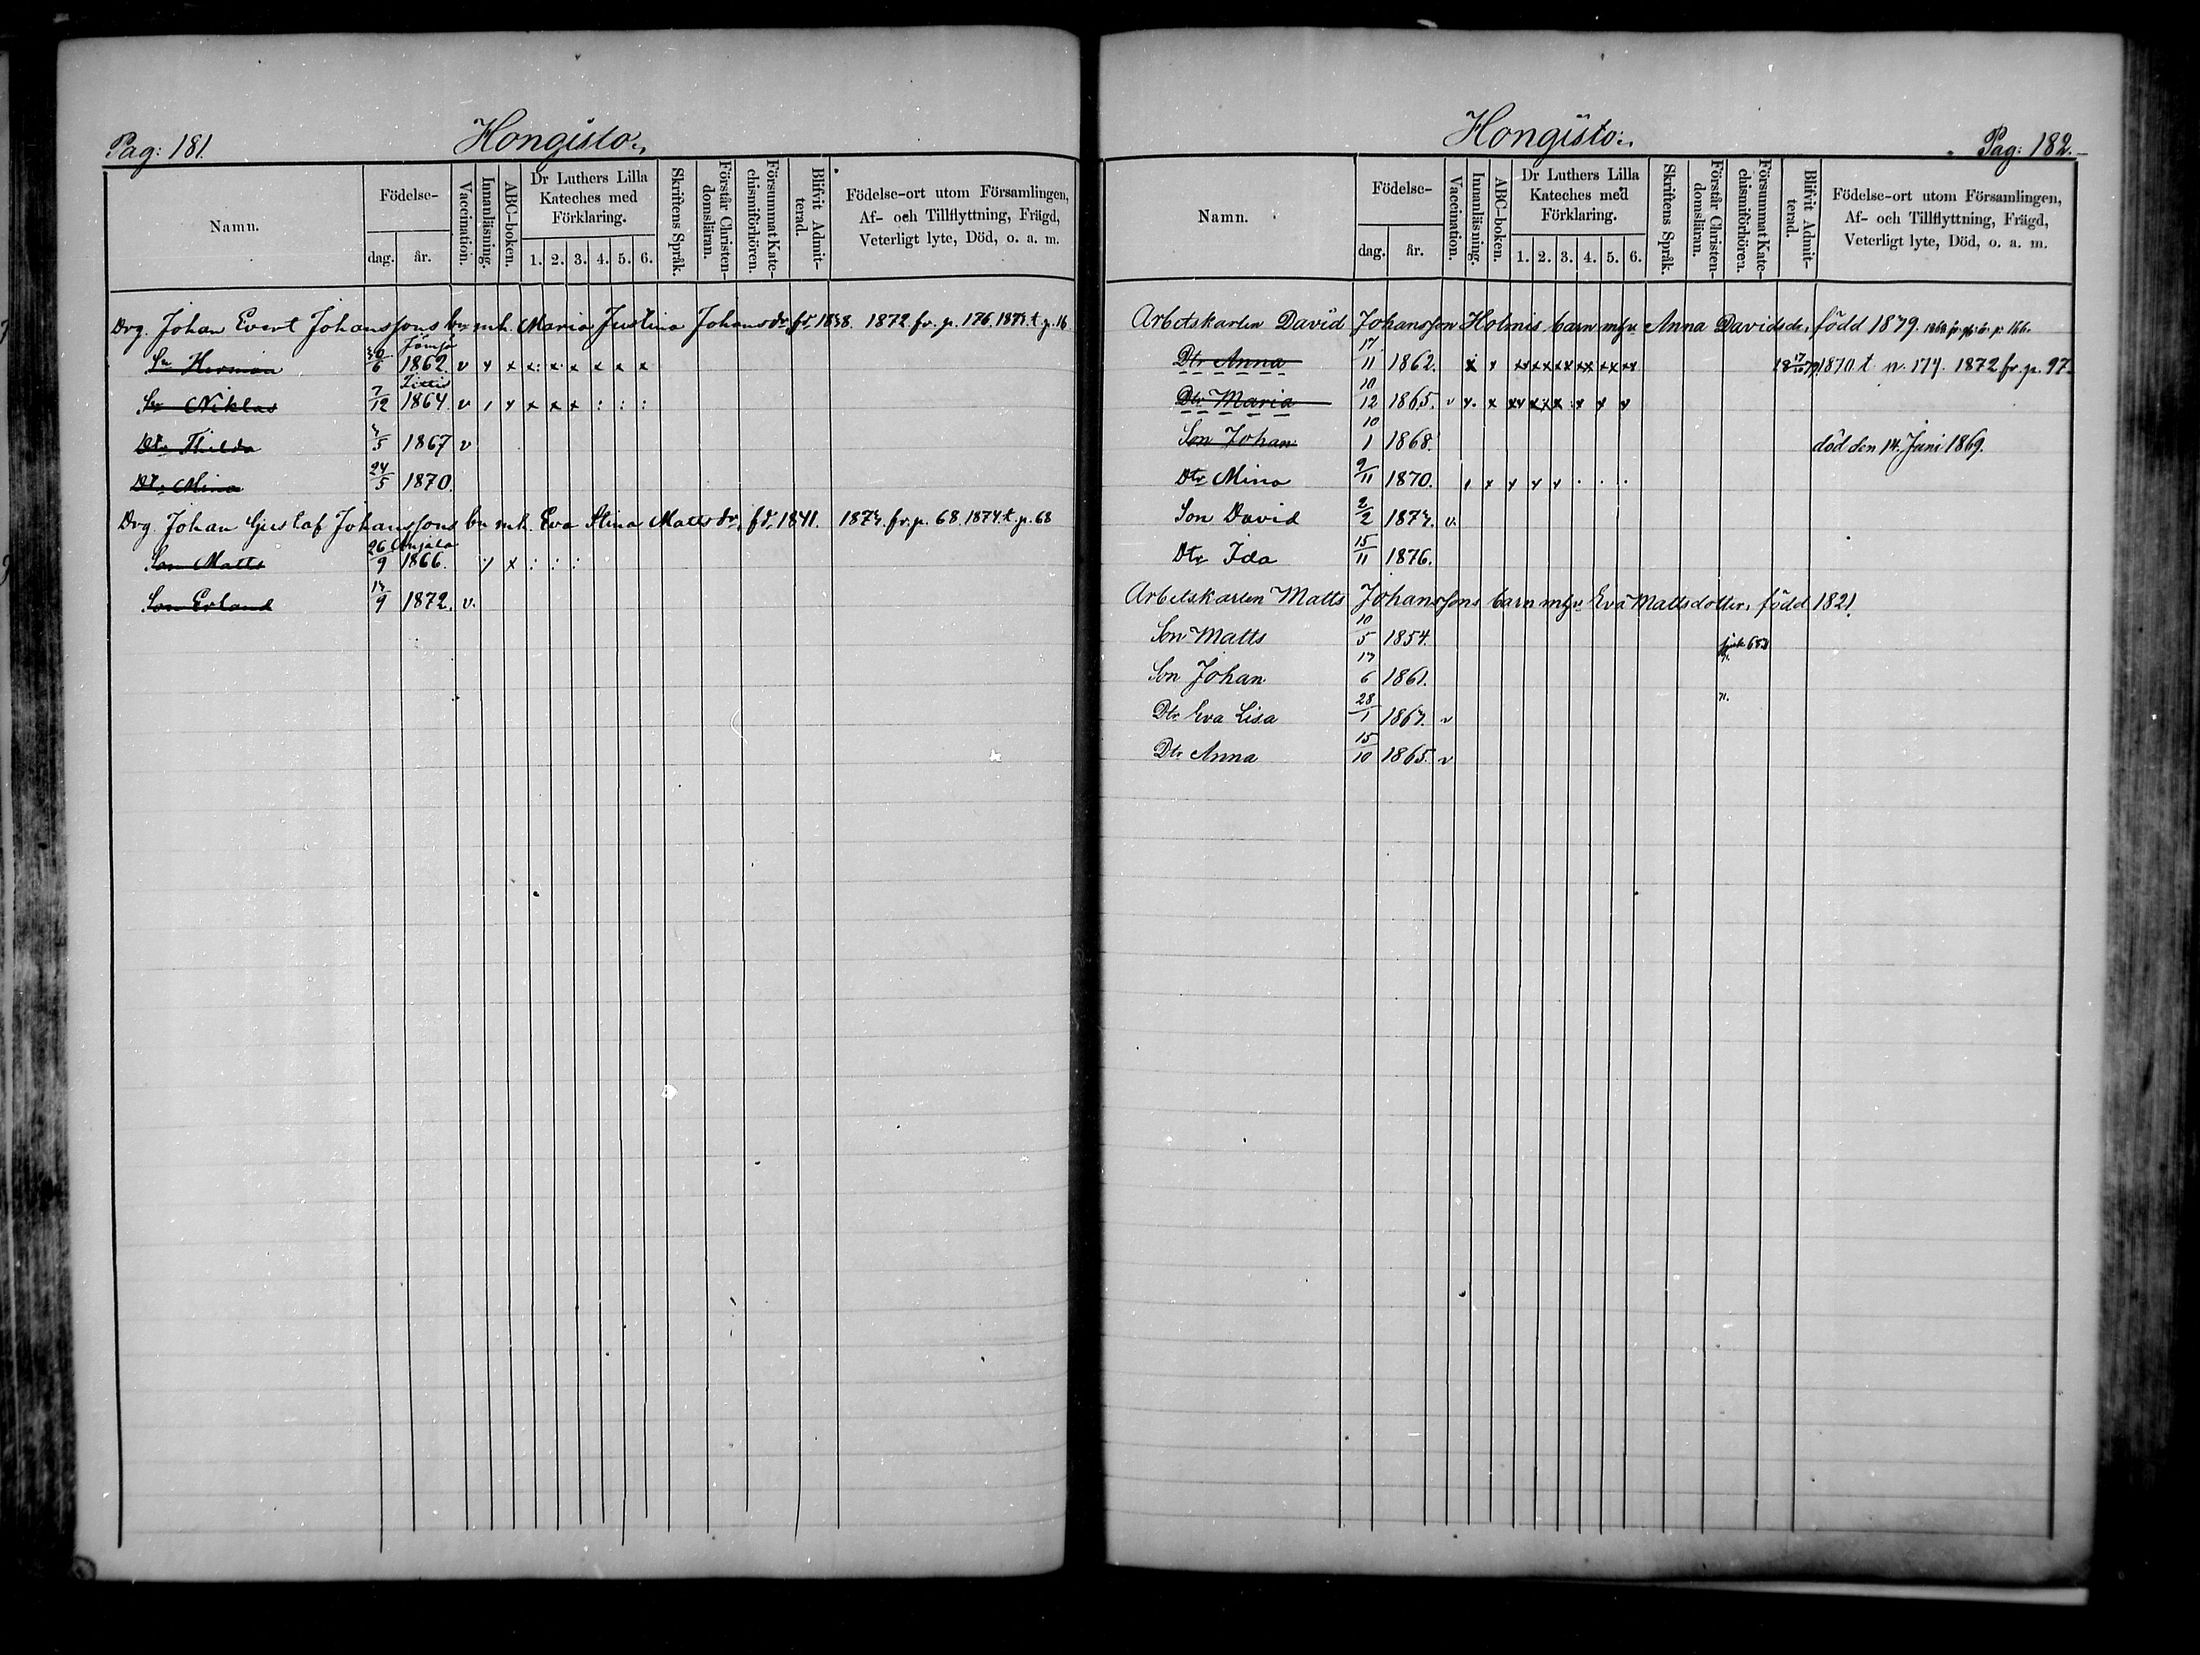 Pag: 181.
Hongisto:
Namn.
Födelse-
dag.
år.
Vaccination.
Innanläsning.
ABC-boken.
Dr Luthers Lilla Kateches med Förklaring.
1. 2. 3. 4. 5. 6.
Skriftens Språk.
Förstår Christendomsläran.
Försummat Katechismiförhören.
Blifvit Admitterad.
Födelse-ort utom Församlingen, Af- och Tillflyttning, Frägd, Veterligt lyte, Död, o. a. m.
Drg. Johan Evert Johanssons bn mh. Maria Justina Johansdr, fd. 1838. 1872. fr. p. 176. 1873. t. p. 16
Sn Herman 6 1862. v x x x x x x x x
Sn Niklas 7/12 1864. v x x x x : : :
Dtr Thilda 5 1867 v
Dtr Mina 24/5 1870.
Drg. Johan Gustaf Johanssons bn mh. Eva Stina Mattsdr, fd. 1841. 1873. fr. p. 68. 1874. t. p. 68
Anjala
Son Matts 26/9 1866. x : : :
Son Erland 9 1872. v.
Hongisto:
Pag: 182.
Namn.
Födelse-
dag.
år.
Vaccination.
Innanläsning.
ABC-boken.
Dr Luthers Lilla Kateches med Förklaring.
1. 2. 3. 4. 5. 6.
Skriftens Språk.
Förstår Christendomsläran.
Försummat Katechismiförhören.
Blifvit Admitterad.
Födelse-ort utom Församlingen, Af- och Tillflyttning, Frägd, Veterligt lyte, Död, o. a. m.
Arbetskarlen David Johansson Holmis barn mhu Anna Davidsdr, född
Dtr Anna 17/11 1862. 1870. t. p. 1872. fr. p. 97.
Dtr Maria 10/12 1865. v
Son Johan 10/1 1868. död den 14. Juni 1869.
Dtr Mina 9/11 1870.
Son David 2/2 1873. v.
Dtr Ida 15/11 1876.
Arbetskarlen Matts Johanssons barn mhu Eva Mattsdotter, född 1821.
Son Matts 10/5 1854.
Son Johan 6 1861.
Dtr Eva Lisa 28/1 1863. v
Dtr Anna 15/10 1865. v